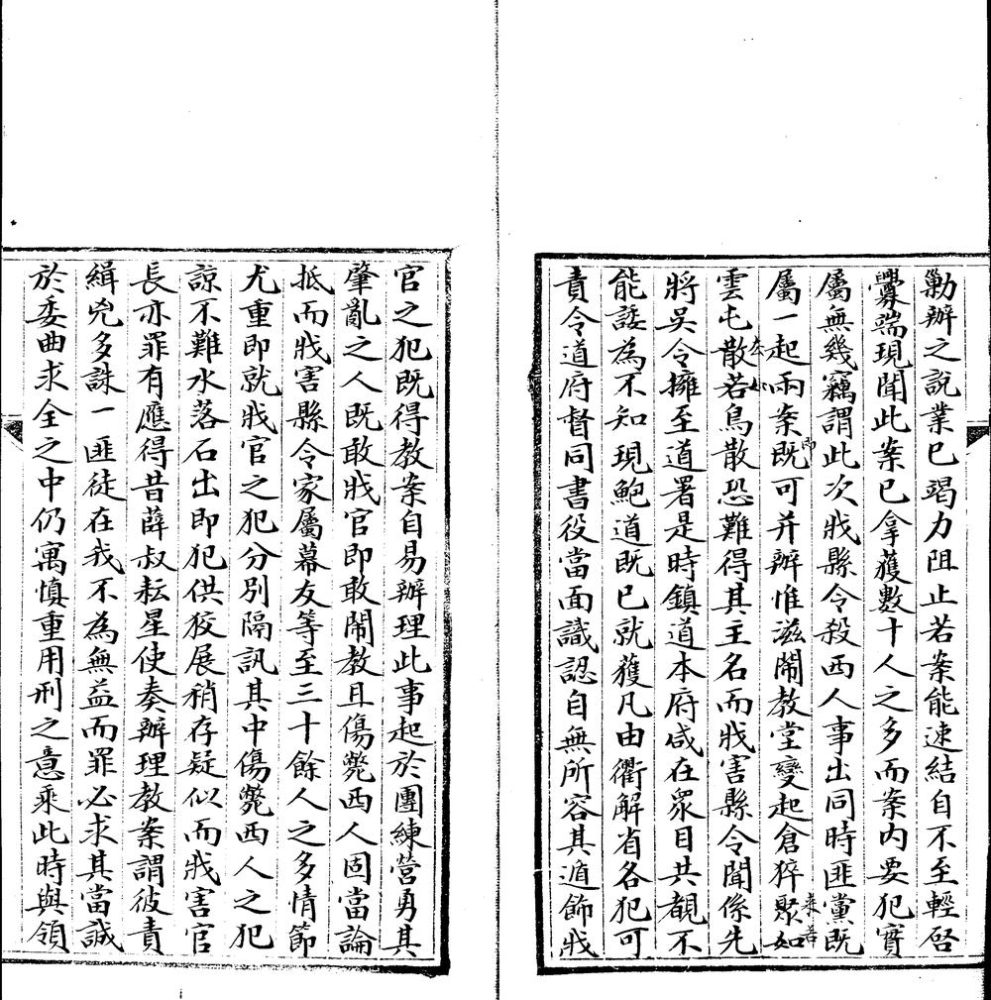 勦辦之說業已竭力阻止若案能速結自不至輕啓
釁端現聞此案已拿獲數十人之多而案內要犯實
屬無幾竊謂此次戕縣令殺西人事出同時匪黨既
屬一起兩案既可并辦惟滋鬧教堂變起倉猝聚如
雲屯散若鳥散恐難得其主名而戕害縣令聞係先
將吳令擁至道署是時鎮道本府咸在眾目共覩不
能諉為不知現鮑道既已就獲凡由衢解省各犯可
責令道府督同書役當面識認自無所容其遁飾戕
官之犯既得教案自易辦理此事起於團練營勇其
肇亂之人既敢戕官即敢鬧教且傷斃西人固當論
抵而戕害縣令家屬幕友等至三十餘人之多情節
尤重即就戕官之犯分別隔訊其中傷斃西人之犯
諒不難水落石出即犯供狡展稍存疑似而戕害官
長亦罪有應得昔薛叔耘星使奏辦理教案謂彼責
緝兇多誅一匪徒在我不為無益而罪必求其當誠
於委曲求全之中仍寓慎重用刑之意乘此時與領